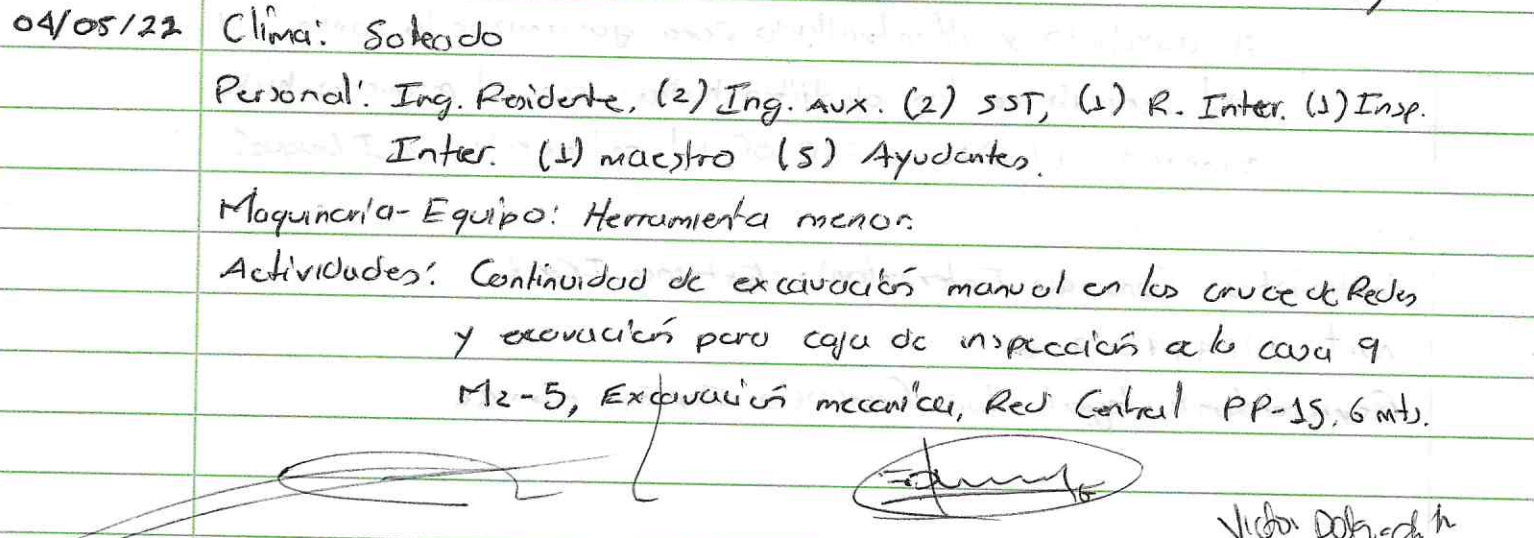 04/05/22 Clima: Soleado
Personal: Ing. Residente, (2) Ing. Aux. (2) SST, (1) R. Inter. (1) Insp.
Inter. (1) maestro (5) Ayudantes.
Maquinaria-Equipo: Herramienta menor.
Actividades: Continuidad de excavación manual en los cruce de Redes
y excavación para caja de inspección a la casa 9
Mz-5, Excavación mecanica, Red Central PP-15, 6 mts.
Victor